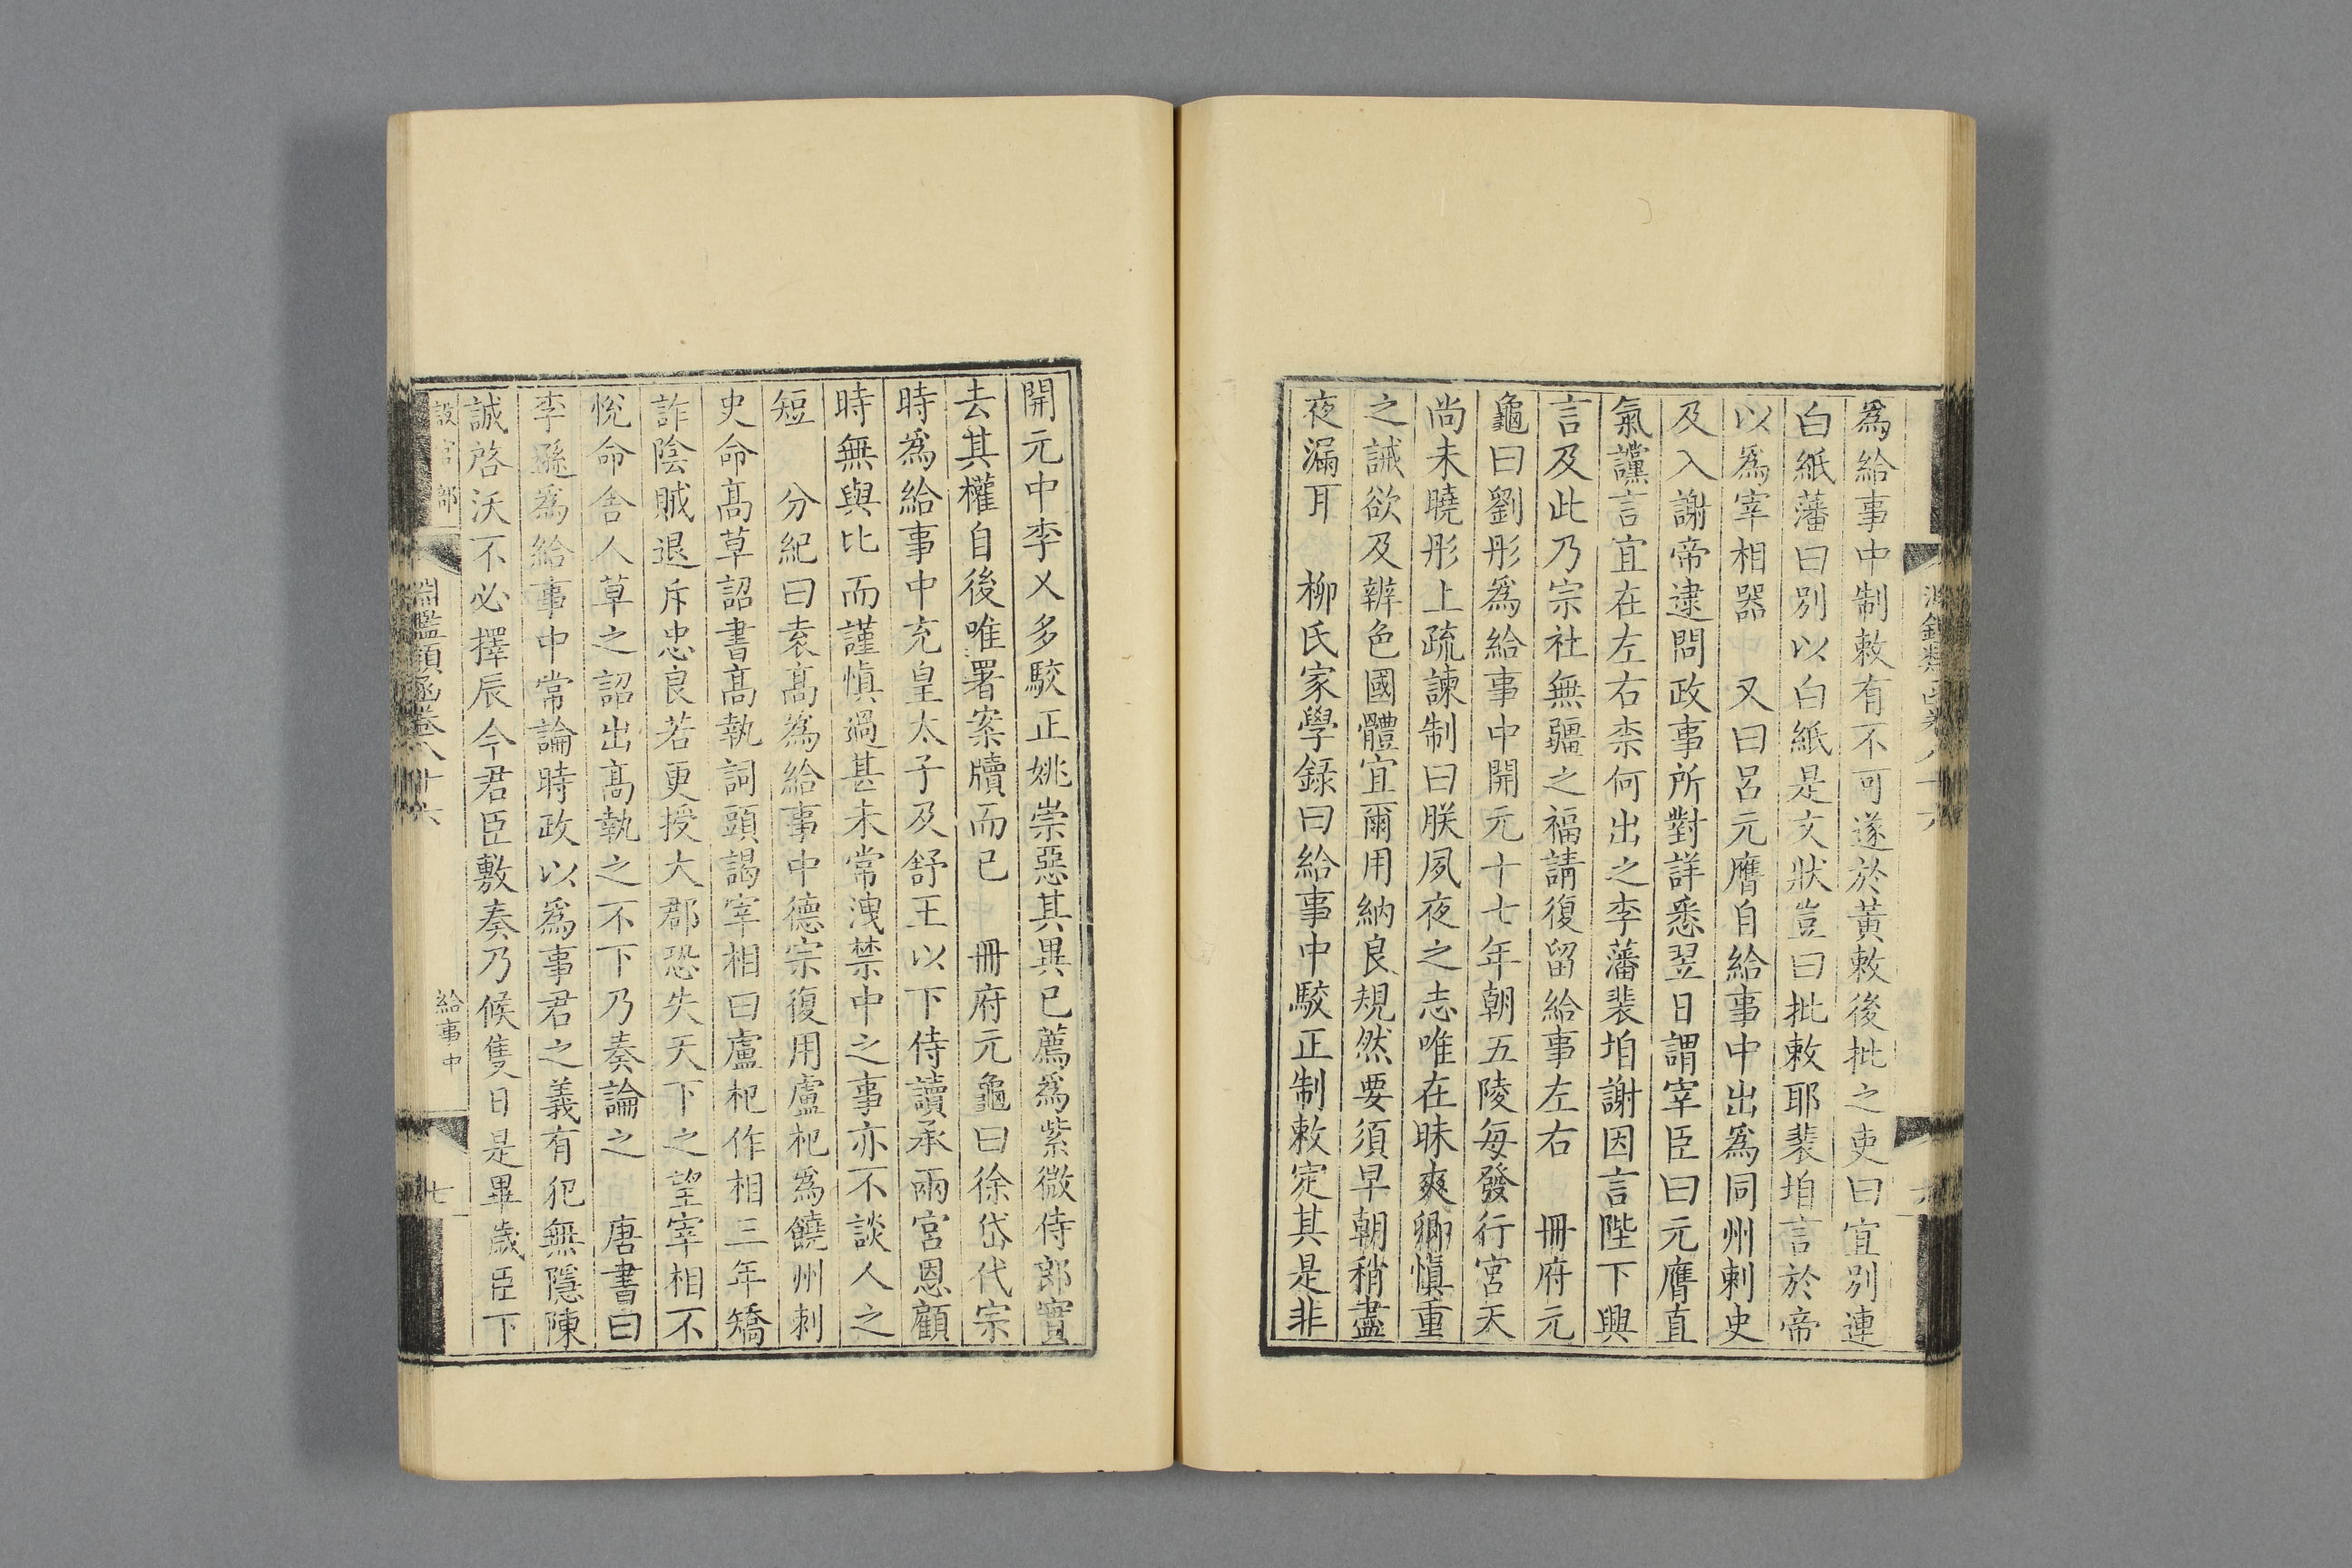 爲給事中制敕有不可遂於黃敕後批之吏曰宜別連
白紙藩曰別以白紙是文狀豈曰批敕耶裴垍言於帝
以爲宰相器 又曰呂元膺自給事中出爲同州刺史
及入謝帝逮問政事所對詳悉翌日謂宰臣曰元膺直
氣讜言宜在左右柰何出之李藩裴垍謝因言陛下興
言及此乃宗社無疆之福請復留給事左右 冊府元
龜曰劉彤爲給事中開元十七年朝五陵每發行宮天
尚未曉彤上疏諫制曰朕夙夜之志唯在昧爽卿愼重
之誠欲及辨色國體宜爾用納良規然要須早朝稍盡
夜漏耳 柳氏家學錄曰給事中駮正制敕定其是非
開元中李乂多駮正姚崇惡其異已薦爲紫微侍郎實
去其權自後唯署案牘而已 冊府元龜曰徐岱代宗
時爲給事中充皇太子及舒王以下侍讀承兩宮恩顧
時無與比而謹愼過甚未常洩禁中之事亦不談人之
短 分紀曰袁高爲給事中德宗復用盧杞爲饒州刺
史命高草詔書高執詞頭謁宰相曰盧杞作相三年矯
詐陰賊退斥忠良若更授大郡恐失天下之望宰相不
悅命舍人草之詔出高執之不下乃奏論之 唐書曰
李遜爲給事中常論時政以爲事君之義有犯無隱陳
誠啓沃不必擇辰今君臣敷奏乃候隻日是畢歲臣下
設官部 淵鑑類函卷八十六 給事中 七